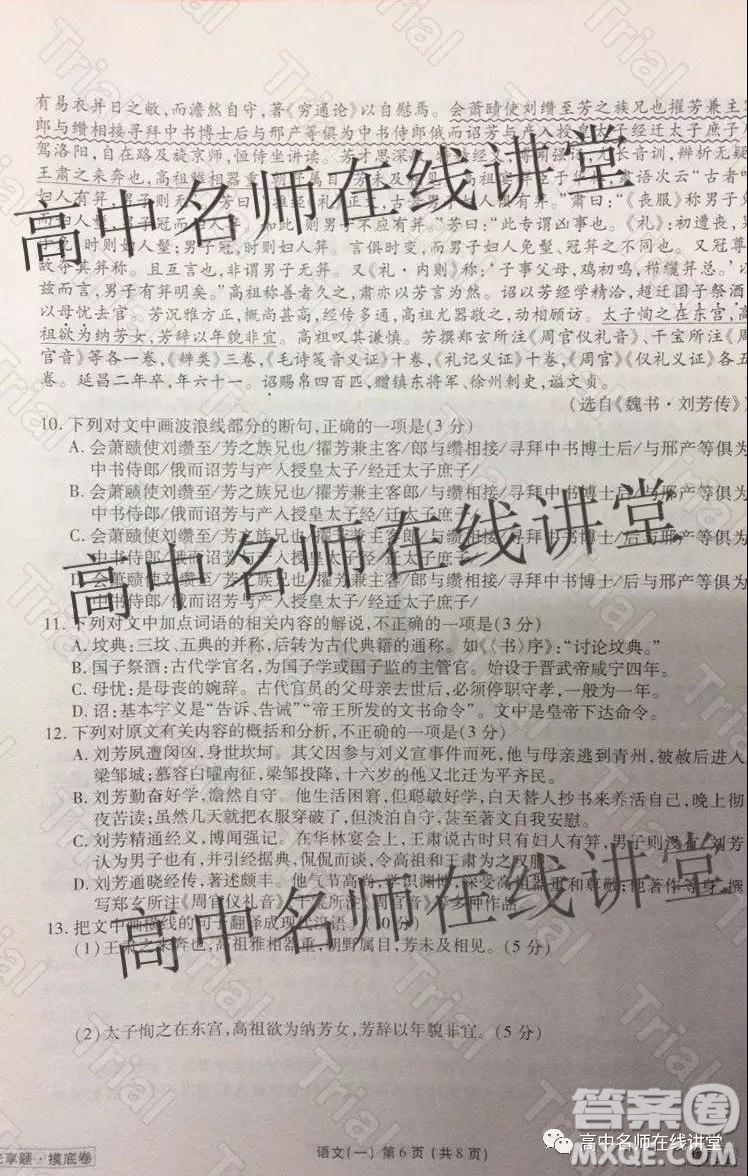 有易衣并日之敝,而澹然自守,著《穷通论》以自慰焉。会萧赜使刘缵至芳之族兄也擢芳兼主
郎与缵相接寻拜中书博士后与邢产等俱为中书侍郎俄而诏芳与产入授皇太子经迁太子庶子
驾洛阳,自在路及旋京师,恒侍坐讲读。芳才思深
王肃之来奔也,高祖雅相器重,朝野属目,芳未及相见。
妇人有笄,男子则
男子不应有笄。”芳曰:“此专谓凶事也。《礼》:初遭丧,
时则妇人髽;男子冠,时则妇人笄。言俱时变,而男子妇人免髽、冠笄之不同也。又冠尊
故夺其笄称。且互言也,非谓男子无笄。又《礼·内则》称:‘子事父母,鸡初鸣,栉纚笄总。’
兹而言,男子有笄明矣。”高祖称善者久之,肃亦以芳言为然。诏以芳经学精洽,超迁国子祭酒
以母忧去官。芳沉雅方正,概尚甚高,经传多通,高祖尤器敬之,动相顾访。太子恂之在东宫,高
祖欲为纳芳女,芳辞以年貌非宜。高祖叹其谦慎。芳撰郑玄所注《周官仪礼音》、干宝所注《周
官音》等各一卷,《辨类》三卷,《毛诗笺音义证》十卷,《礼记义证》十卷,《周官》《仪礼义证》各五
卷。延昌二年卒,年六十一。诏赐帛四百匹,赠镇东将军、徐州刺史,谥文贞。
(选自《魏书·刘芳传》)
10. 下列对文中画波浪线部分的断句,正确的一项是(3 分)
A. 会萧赜使刘缵至/芳之族兄也/擢芳兼主客/郎与缵相接/寻拜中书博士后/与邢产等俱为
中书侍郎/俄而诏芳与产入授皇太子/经迁太子庶子/
B. 会萧赜使刘缵至/芳之族兄也/擢芳兼主客郎/与缵相接/寻拜中书博士/后与邢产等俱为
中书侍郎/俄而诏芳与产入授皇太子经/迁太子庶子/
C.
中书侍郎/俄而诏芳与产入授皇太子经/迁太子庶子/
D. 会萧赜使刘缵至/芳之族兄也/擢芳兼主客郎与缵相接/寻拜中书博士/后与邢产等俱为
中书侍郎/俄而诏芳与产入授皇太子/经迁太子庶子/
11. 下列对文中加点词语的相关内容的解说,不正确的一项是(3 分)
A. 坟典:三坟、五典的并称,后转为古代典籍的通称。如《〈书〉序》:“讨论坟典。”
B. 国子祭酒:古代学官名,为国子学或国子监的主管官。始设于晋武帝咸宁四年。
C. 母忧:是母丧的婉辞。古代官员的父母亲去世后,必须停职守孝,一般为一年。
D. 诏:基本字义是“告诉、告诫”“帝王所发的文书命令”。文中是皇帝下达命令。
12. 下列对原文有关内容的概括和分析,不正确的一项是(3 分)
A. 刘芳夙遭闵凶,身世坎坷。其父因参与刘义宣事件而死,他与母亲逃到青州,被赦后入居
梁邹城;慕容白曜南征,梁邹投降,十六岁的他又北迁为平齐民。
B. 刘芳勤奋好学,澹然自守。他生活困窘,但聪敏好学,白天替人抄书来养活自己,晚上彻
夜苦读;虽然几天就把衣服穿破了,但淡泊自守,甚至著文自我安慰。
C. 刘芳精通经义,博闻强记。在华林宴会上,王肃说古时只有妇人有笄,男子则没有,刘芳
认为男子也有,并引经据典,侃侃而谈,令高祖和王肃为之叹服。
D. 刘芳通晓经传,著述颇丰。他气节高尚,学识渊博,深受高祖器重和尊敬;他著作等身,撰
写郑玄所注《周官仪礼音》、干宝所注《周官音》等多种作品。
13. 把文中画横线的句子翻译成现代汉语。(10 分)
(1)王肃之来奔也,高祖雅相器重,朝野属目,芳未及相见。(5 分)
(2)太子恂之在东宫,高祖欲为纳芳女,芳辞以年貌非宜。(5 分)
享题·摸底卷
语文(一) 第 6 页 (共 8 页)
高中名师在线讲堂
高中名师在线讲堂
高中名师在线讲堂
Trial
答案卷
MXQE.COM
高中名师在线讲堂